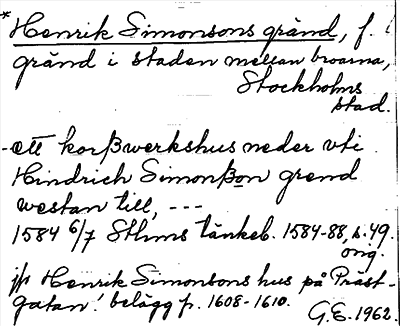 * Henrik Simonsons gränd, f. (
gränd i staden mellan broarna,
Stockholms
stad.
- ett korßwerkshus neder vti
Hindrich Simonßon grend
westan till, ---
1584 6/7 Sthms tänkeb. 1584-88, s. 49.
orig.
jfr Henrik Simonsons hus på Präst-
gatan! belägg fr. 1608-1610.
G.E. 1962.